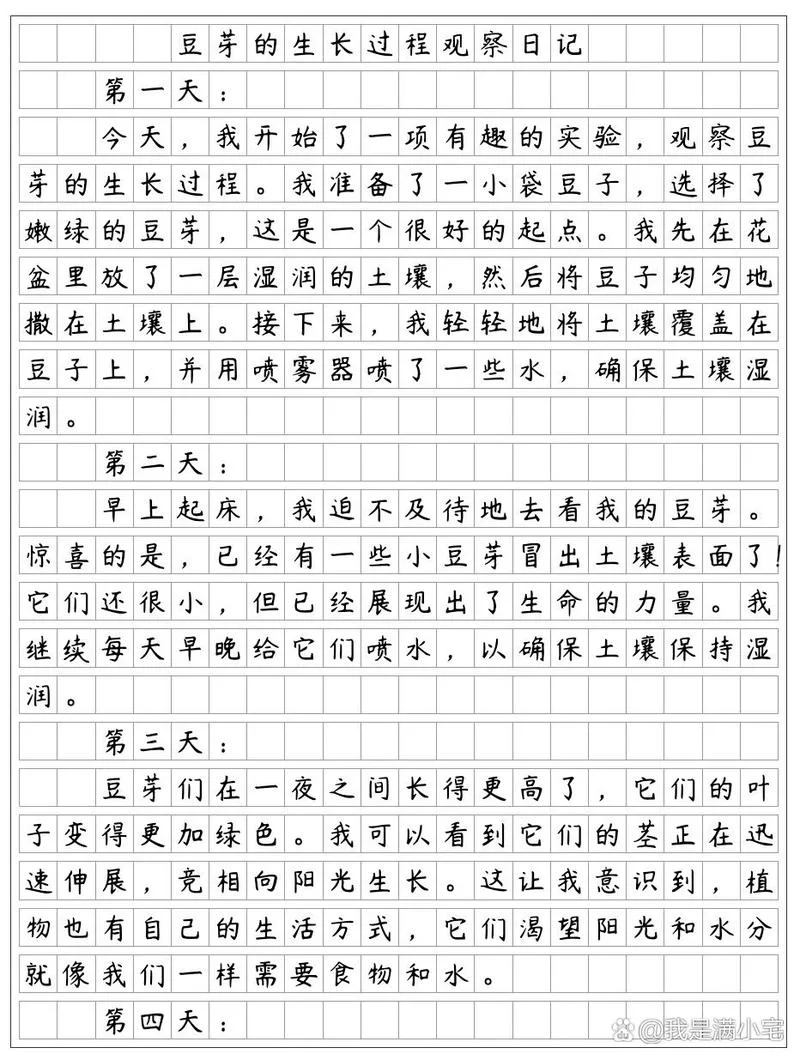 豆芽的生长过程观察日记
第一天：
今天，我开始了一项有趣的实验，观察豆
芽的生长过程。我准备了一小袋豆子，选择了
嫩绿的豆芽，这是一个很好的起点。我先在花
盆里放了一层湿润的土壤，然后将豆子均匀地
撒在土壤上。接下来，我轻轻地将土壤覆盖在
豆子上，并用喷雾器喷了一些水，确保土壤湿
润。
第二天：
早上起床，我迫不及待地去看我的豆芽。
惊喜的是，已经有一些小豆芽冒出土壤表面了！
它们还很小，但已经展现出了生命的力量。我
继续每天早晚给它们喷水，以确保土壤保持湿
润。
第三天：
豆芽们在一夜之间长得更高了，它们的叶
子变得更加绿色。我可以看到它们的茎正在迅
速伸展，竞相向阳光生长。这让我意识到，植
物也有自己的生活方式，它们渴望阳光和水分
就像我们一样需要食物和水。
第四天：
@我是满小宅